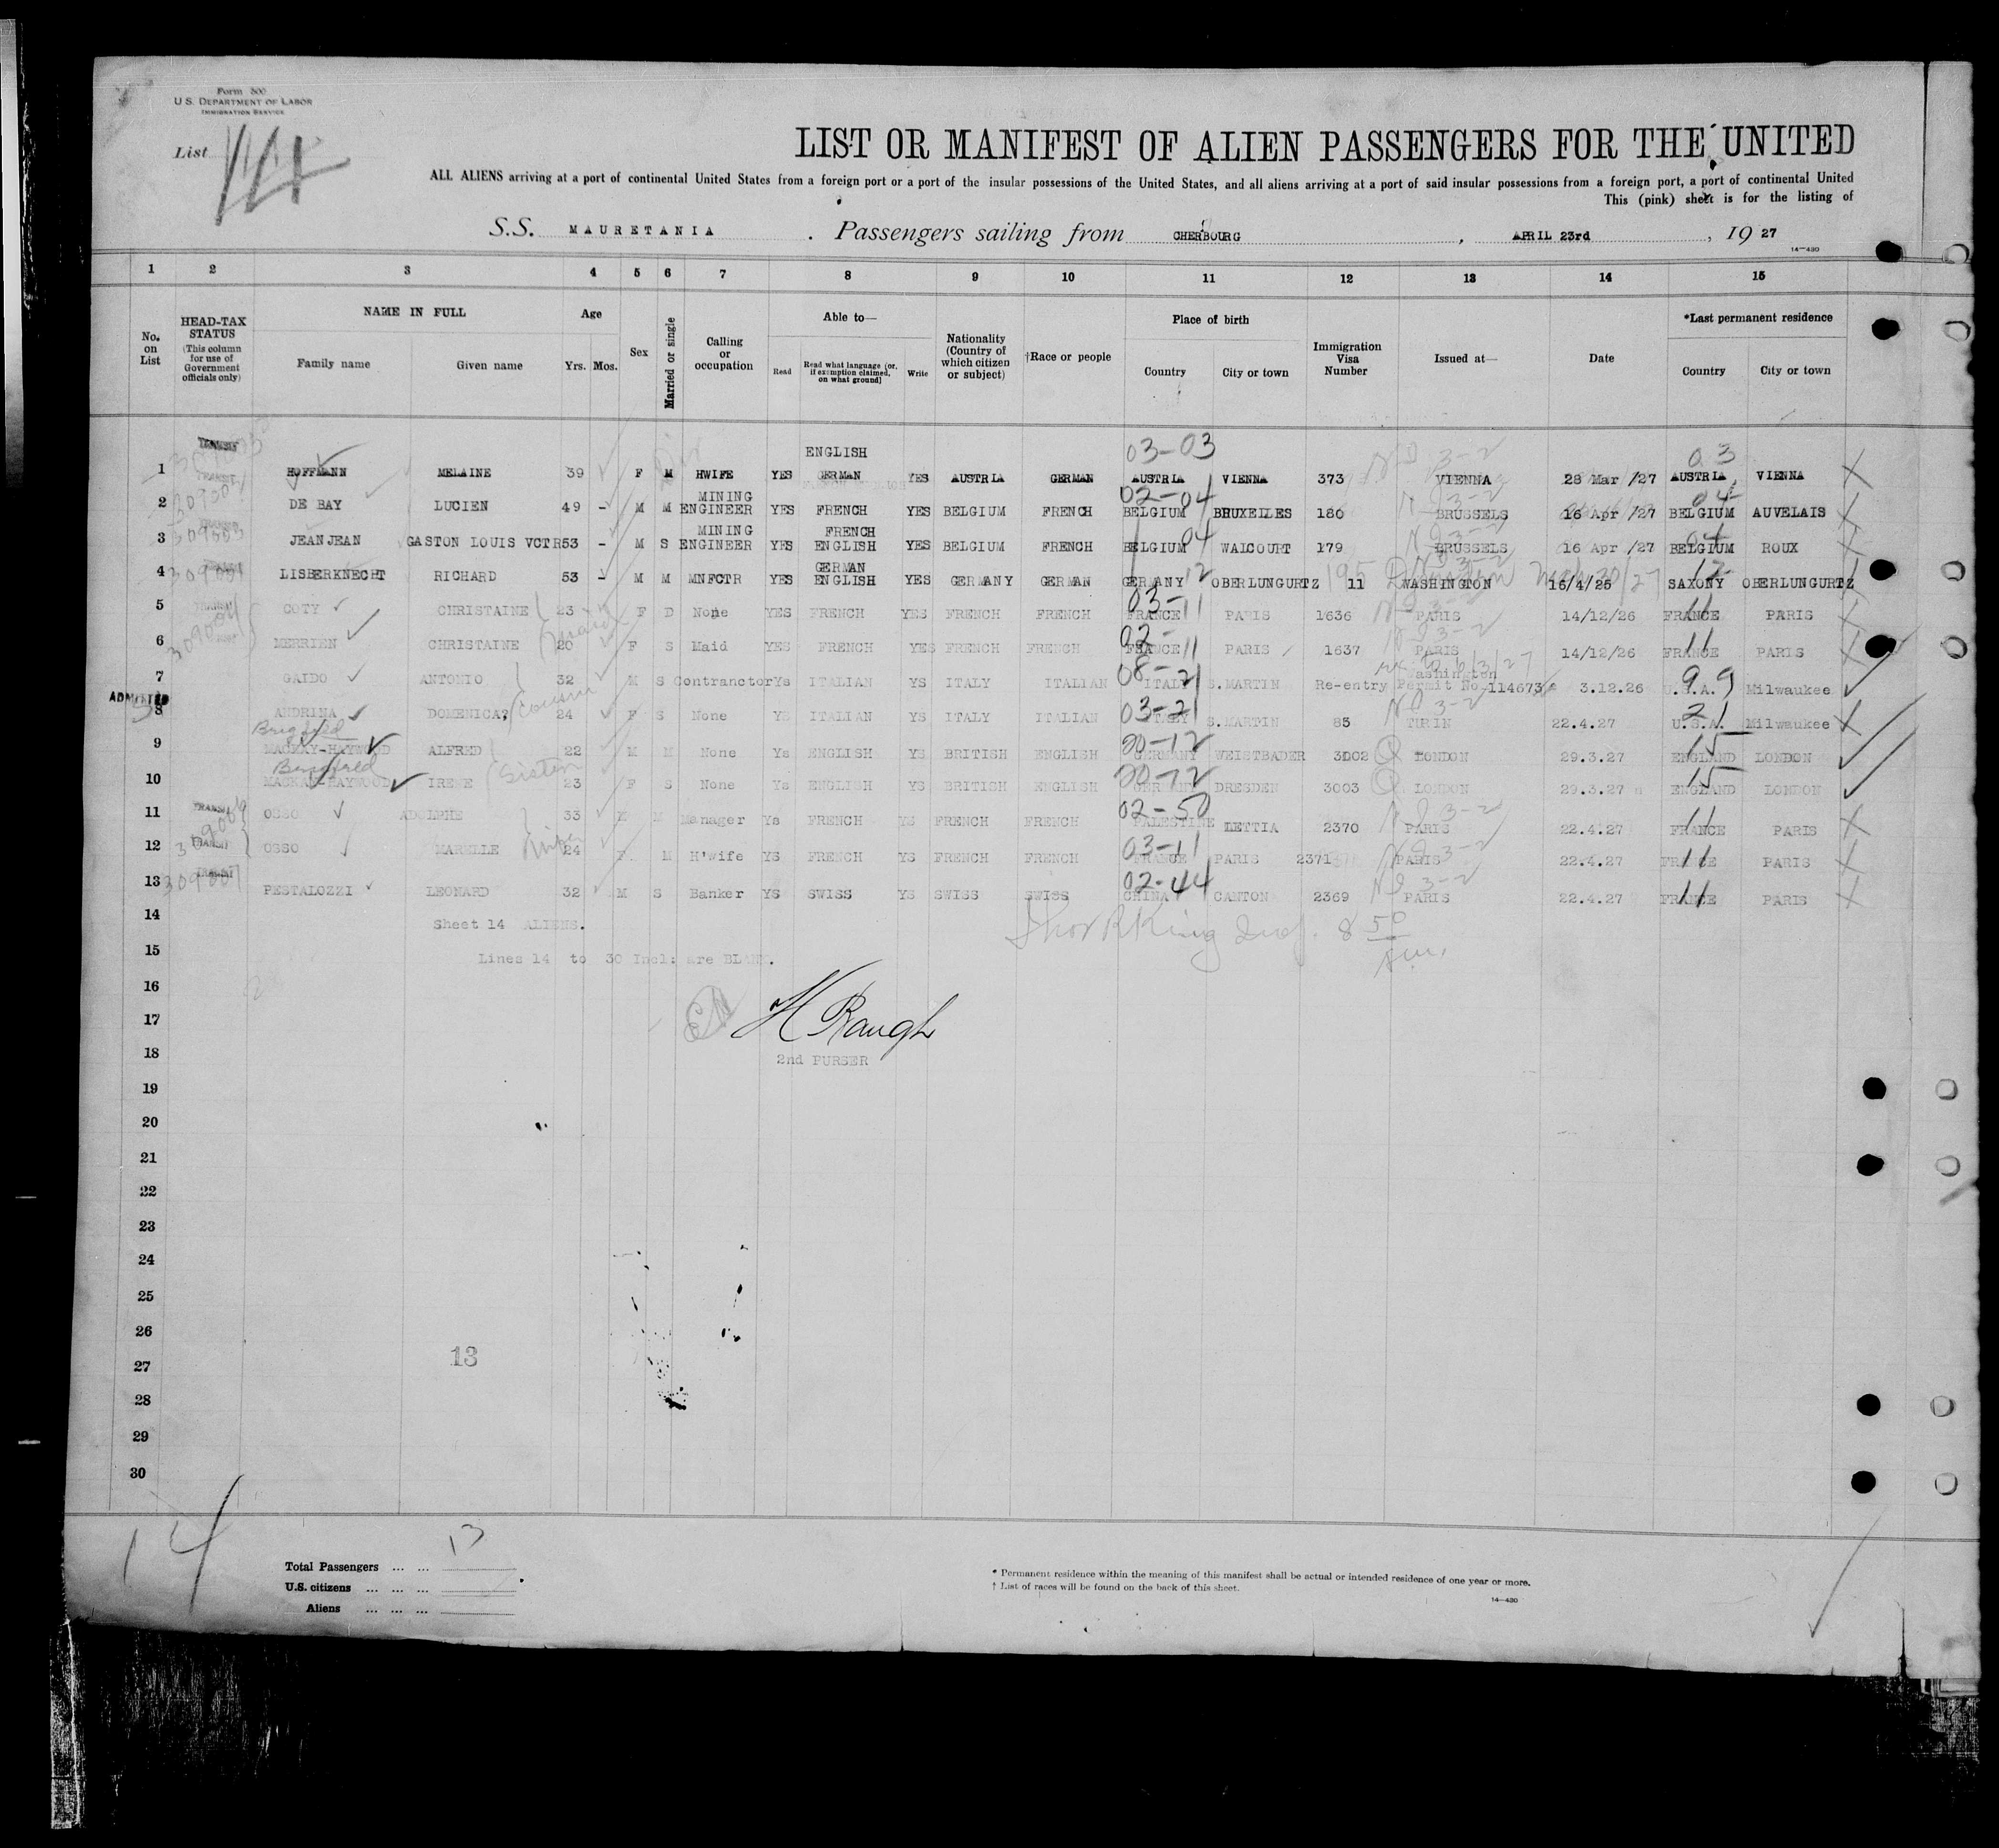 Form 500
U.S. DEPARTMENT OF LABOR
IMMIGRATION SERVICE
List 14
LIST OR MANIFEST OF ALIEN PASSENGERS FOR THE UNITED
ALL ALIENS arriving at a port of continental United States from a foreign port or a port of the insular possessions of the United States, and all aliens arriving at a port of said insular possessions from a foreign port, a port of continental United
This (pink) sheet is for the listing of
S.S. MAURETANIA . Passengers sailing from CHERBOURG , APRIL 23rd , 19 27
14—430
1 2 3 4 5 6 7 8 9 10 11 12 13 14 15
No. on List
HEAD-TAX STATUS (This column for use of Government officials only)
NAME IN FULL
Family name Given name
Age
Yrs. Mos.
Sex
Married or single
Calling or occupation
Able to—
Read Read what language (or, if exemption claimed, on what ground) Write
Nationality (Country of which citizen or subject)
†Race or people
Place of birth
Country City or town
Immigration Visa Number
Issued at—
Date
*Last permanent residence
Country City or town
TRANSIT ENGLISH 03-03 03
1 HOFFMANN MELAINE 39 F M HWIFE YES GERMAN YES AUSTRIA GERMAN AUSTRIA VIENNA 373 VIENNA 28 Mar /27 AUSTRIA VIENNA
MINING 02-04 04
2 DE BAY LUCIEN 49 - M M ENGINEER YES FRENCH YES BELGIUM FRENCH BELGIUM BRUXELLES 180 BRUSSELS 16 Apr /27 BELGIUM AUVELAIS
MINING FRENCH 04 04
3 JEANJEAN GASTON LOUIS VCTR 53 - M S ENGINEER YES ENGLISH YES BELGIUM FRENCH BELGIUM WALCOURT 179 BRUSSELS 16 Apr /27 BELGIUM ROUX
GERMAN 12 12
4 LISBERKNECHT RICHARD 53 - M M MNFCTR YES ENGLISH YES GERMANY GERMAN GERMANY OBERLUNGURTZ 11 WASHINGTON 16/4/25 SAXONY OBERLUNGURTZ
03-11 11
5 COTY CHRISTAINE 23 F D None YES FRENCH YES FRENCH FRENCH FRANCE PARIS 1636 PARIS 14/12/26 FRANCE PARIS
maid 02-11 11
6 MERRIEN CHRISTAINE 20 F S Maid YES FRENCH YES FRENCH FRENCH FRANCE PARIS 1637 PARIS 14/12/26 FRANCE PARIS
08-21 Washington 99
7 GAIDO ANTONIO 32 M S Contranctor Ys ITALIAN YS ITALY ITALIAN ITALY S.MARTIN Re-entry Permit No 114673 3.12.26 U.S.A. Milwaukee
ADMITTED cousin 03-21 21
8 ANDRINA DOMENICA 24 F S None Ys ITALIAN YS ITALY ITALIAN ITALY S.MARTIN 85 TURIN 22.4.27 U.S.A. Milwaukee
20-12 15
9 MACKAY-HAYWOOD ALFRED 22 M M None Ys ENGLISH YS BRITISH ENGLISH GERMANY WEISTBADER 3002 LONDON 29.3.27 ENGLAND LONDON
Sister 20-12 15
10 MACKAY-HAYWOOD IRENE 23 F S None Ys ENGLISH YS BRITISH ENGLISH GERMANY DRESDEN 3003 LONDON 29.3.27 ENGLAND LONDON
TRANSIT 02-50 11
11 OSSO ADOLPHE 33 M M Manager Ys FRENCH YS FRENCH FRENCH PALESTINE LETTIA 2370 PARIS 22.4.27 FRANCE PARIS
TRANSIT 03-11 11
12 OSSO 24 F. M H'wife YS FRENCH YS FRENCH FRENCH FRANCE PARIS 2371 PARIS 22.4.27 FRANCE PARIS
309007 02-44 11
13 PESTALOZZI LEONARD 32 M S Banker YS SWISS YS SWISS SWISS CHINA CANTON 2369 PARIS 22.4.27 FRANCE PARIS
14 Sheet 14 ALIENS.
15 Lines 14 to 30 Incl: are BLANK.
16
17
18 2nd PURSER
19
20
21
22
23
24
25
26
27 13
28
29
30
14
13
Total Passengers ... ...
U.S. citizens ... ... ...
Aliens ... ... ...
* Permanent residence within the meaning of this manifest shall be actual or intended residence of one year or more.
† List of races will be found on the back of this sheet.
14—430